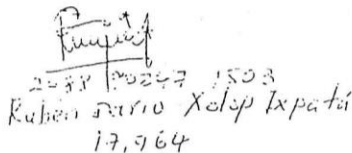 2488 90247 1503
Ruben Dario Xolop Ixpatá
17,964